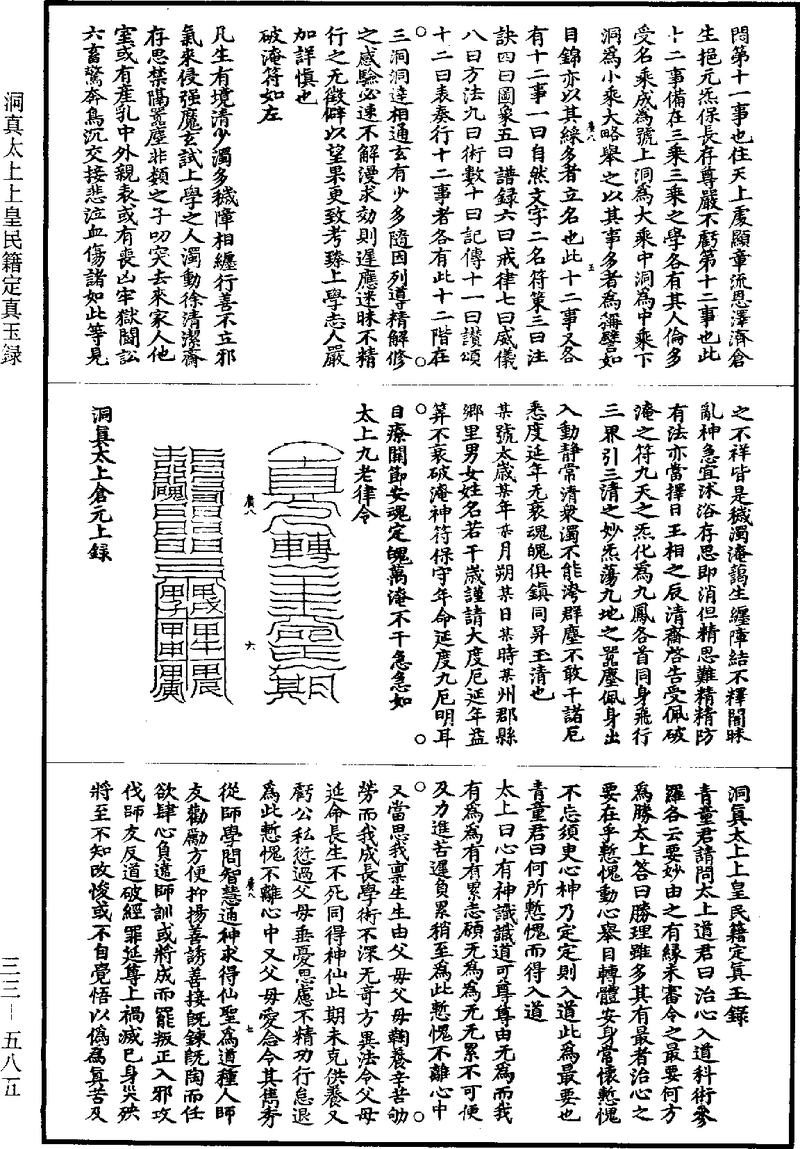 洞真太上上皇民籍定真玉録
三三—五八五
悶第十一事也住天上處顯章流恩澤濟倉
生挹元炁保長存尊嚴不虧第十二事也此
十二事備在三乘三乘之學各有其人倫多
受名乘成為號上洞為大乘中洞為中乘下
洞為小乘大略舉之以其事多者為稱譬如
目錦亦以其綵多者立名也此十二事又各
有十二事一曰自然文字二名符策三曰注
訣四曰圖象五曰譜錄六曰戒律七曰威儀
八曰方法九曰術數十曰記傳十一曰讃頌
十二曰表奏行十二事者各有此十二階在
三洞洞達相通玄有少多隨因列導精解修
之感驗必速不解漫求効則遲應迷昧不精
行之无徵辟以望果更致考臻上學志人嚴
加詳慎也
破淹符如左
凡生有境清少濁多穢障相纏行善不立邪
氣來侵强魔玄試上學之人濁動徐清潔齋
存思禁隔嚣塵非類之子叨突去來家人他
室或有產乳中外親表或有喪凶牢獄鬪訟
六畜驚奔鳥沉交接悲泣血傷諸如此等見
之不祥皆是穢濁淹藹生纏障結不釋闇昧
亂神急宜沐浴存思即消但精思難精精防
有法亦當擇日王相之辰清齋啓告受佩破
淹之符九天之炁化為九鳳各首同身飛行
三界引三清之妙炁蕩九地之嚣塵佩身出
入動靜常清衆濁不能淹群塵不敢干諸厄
悉度延年无衰魂魄俱鎮同昇玉清也
某號太歲某年某月朔某日某時某州郡縣
鄉里男女姓名若干歲謹請大度厄延年益
筭不衰破淹神符保守年命延度九厄明耳
目療開節安魂定魄萬淹不干急急如
太上九老律令
甲戌 甲午 甲辰
甲子 甲申 甲寅
洞真太上倉元上録
洞真太上上皇民籍定真玉録
青童君請問太上道君曰治心入道科術參
羅各云要妙由之有緣未審令之最要何方
為勝太上荅曰勝理雖多其有最者治心之
要在乎慙愧動心舉目轉體安身常懷慙愧
不忘須臾心神乃定定則入道此為最要也
青童君曰何所慙愧而得入道
太上曰心有神識識道可尊尊由无為而我
有為為有有累志願无為為无无累不可便
及力進苦遲負累稍至為此慙愧不離心中
又當思我禀生生由父母父母鞠養辛苦劬
勞而我成長學術不深无奇方異法令父母
延命長生不死同得神仙此期未克供養又
虧公私愆過父母垂憂思慮不精功行怠退
為此慙愧不離心中又父母愛念令其雋秀
從師學問智慧通神求得仙聖為道種人師
友勸勵方便抑揚善誘善接既鍊既陶而任
欲肆心負違師訓或將成而罷叛正入邪攻
伐師友反道破經罪延尊上禍滅己身災殃
將至不知改悛或不自覺悟以偽為真苦及